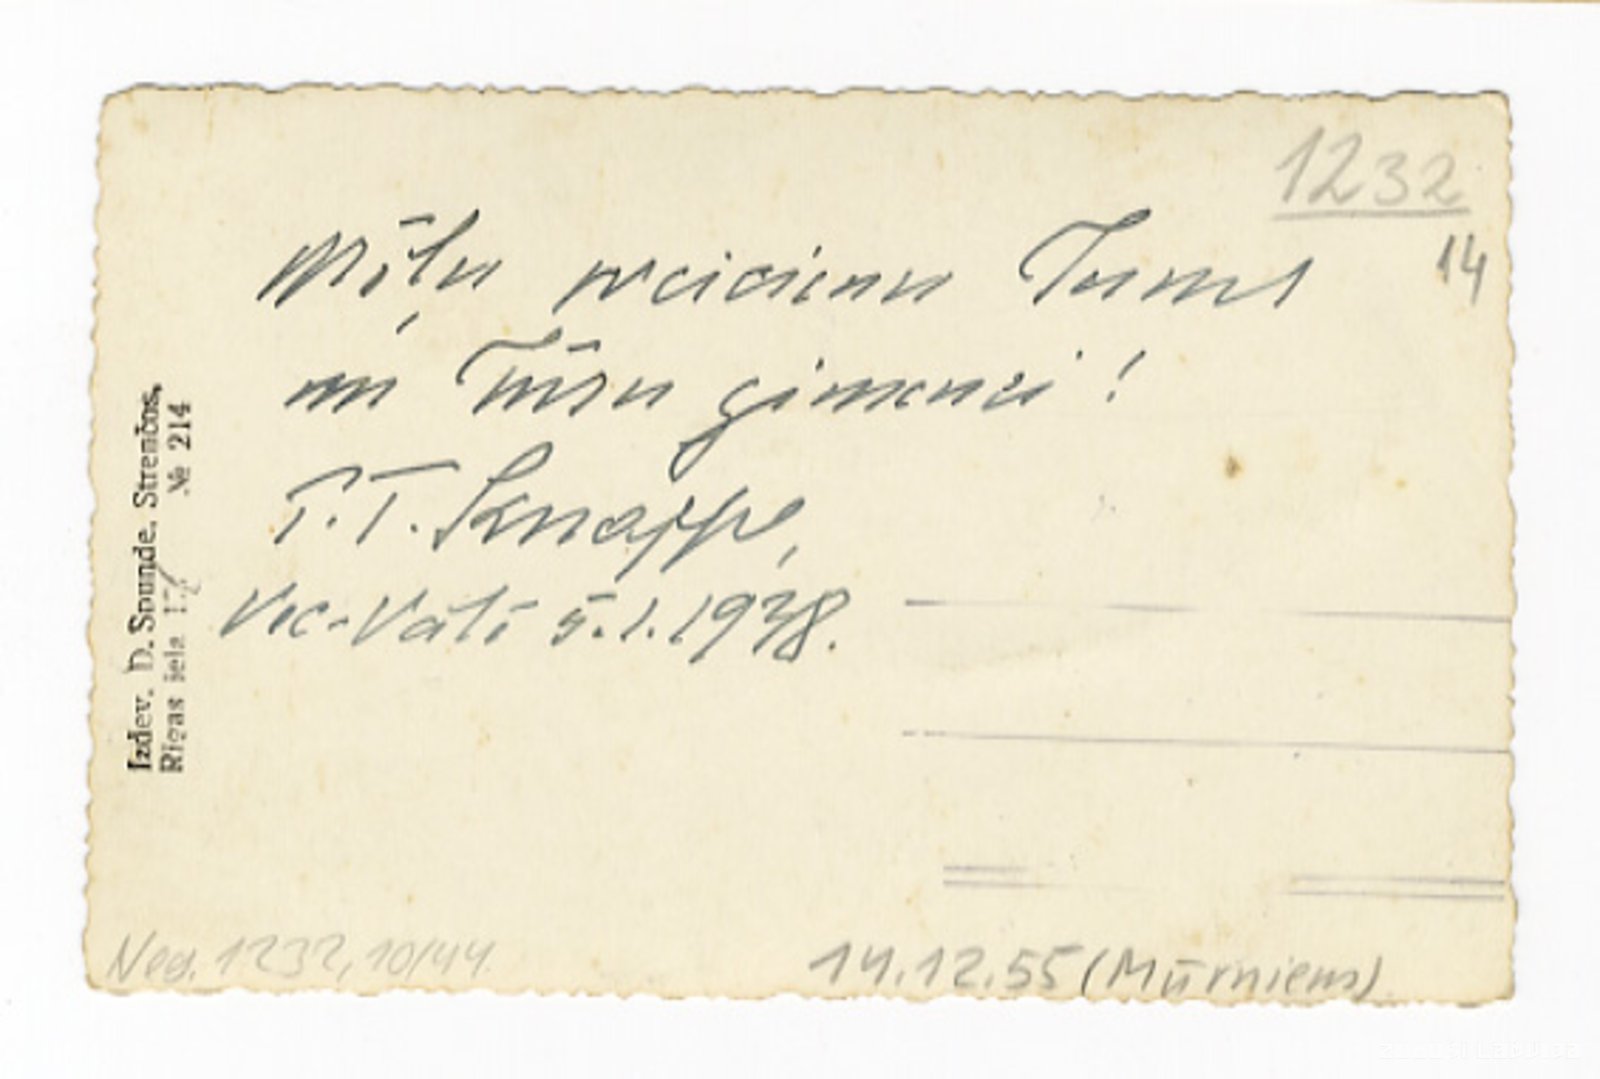 1232
14
Mīļu sveicienu Jums
un Jūsu ģimenei!
T.T. Knappe,
Vec-Vāti 5.1.1938.
Izdev. D. Spunde, Strenčos,
Rīgas iela № 214
Neg. 1232, 10/44
14.12.55 (Mūrnieks)